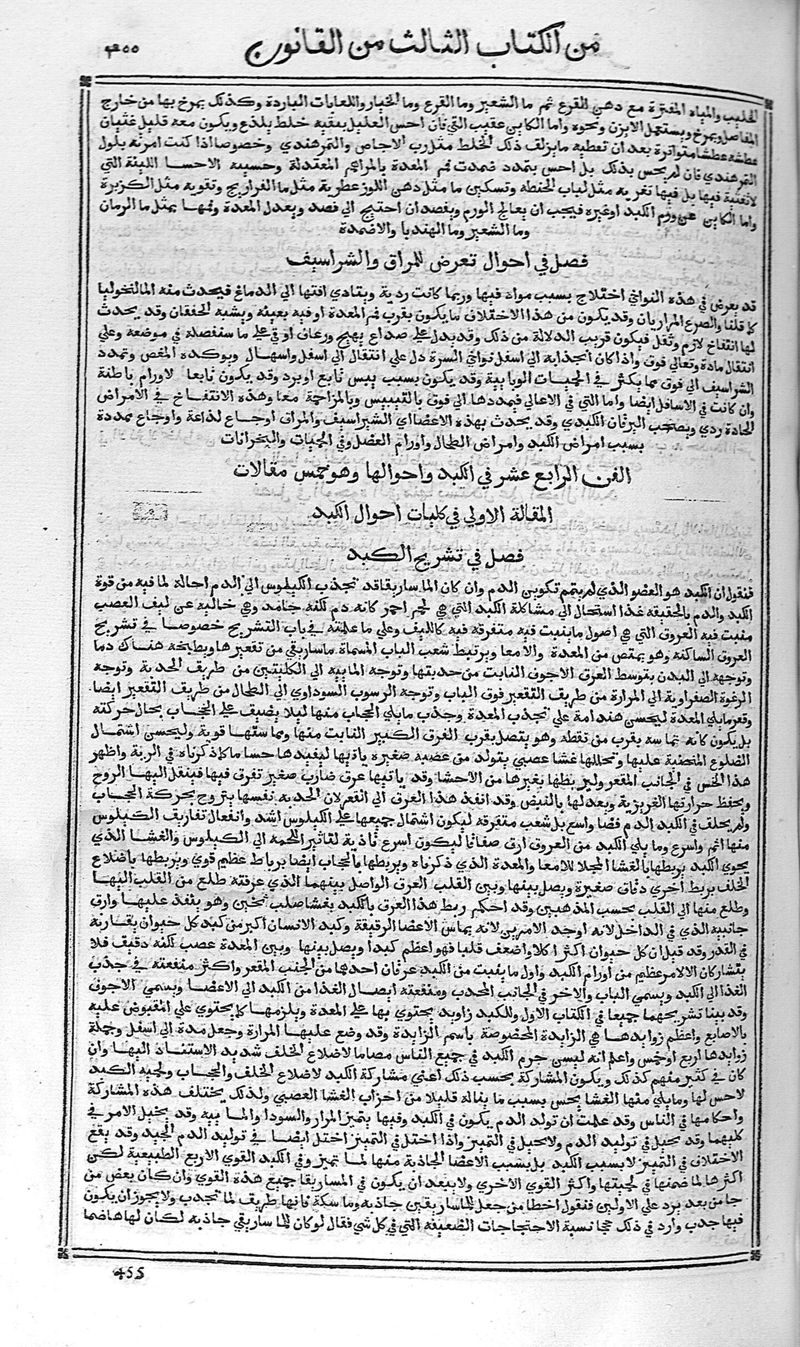 من الكتاب الثالث من القانون
٤٥٥
الحليب والمياه المفترة مع دهن القرع ثم ما الشعير وما القرع وما الخيار واللعابات الباردة وكذلك يمرخ بها من خارج
المفاصل ويمرخ ويستعمل الابزن ونحوه واما الكاين عقيب التي فان احس العليل بعقبه خلط يلذع ويكون معه قليل غثيان
عطشه عطشا متواترة بعد ان تعطيه ما يزلف ذلك الخلط مثل رب الاجاص والتمرهندي وخصوصا اذا كنت امرته بلول
التمرهندي فان لم يحس بذلك بل احس بتمدد ضمدت فم المعدة بالمراهم المعتدلة وحسيته الاحسا اللينة التي
لا تغثية فيها بل فيها تغرية مثل لباب الحنطه وتسكين ما مثل دهن اللوز عطرية مثل ما الفراريج وتقويه مثل الكزبرة
واما الكاين عن ورم الكبد او غيره فيجب ان يعالج الورم ويفصد ان احتيج الى فصد ويعدل المعدة وفمها بمثل ما الرمان
وما الشعير وما الهندبا والاضمدة
فصل في احوال تعرض للمراق والشراسيف
قد يعرض في هذه النواحي اختلاج بسبب مواد فيها وربما كانت ردية ويتادي افتها الى الدماغ فيحدث منه المالنخوليا
كما قلنا والصرع المراريان وقد يكون من هذا الاختلاف ما يكون بقرب فم المعدة او فيه بعينه ويشبه الخفقان وقد يحدث
لها انتفاخ لازم وثقل فيكون قريب الدلالة من ذلك وقد يدل على صداع يهيج ورعاف او قي على ما سنفصله في موضعه وعلي
انتقال مادة وتعالي فوق واذا كان انجذابة الى اسفل نواحي السرة دل علي انتقال الى اسفل واسهال ويوكده المغص وتمدد
الشراسيف الى فوق مما يكثر في الحميات الوبايية وقد يكون بسبب يبس تابع او برد وقد يكون تابعا لاورام باطنة
وان كانت في الاسافل ايضا واما التي في الاعالي فيمددها الى فوق بالتيبيس وبالمزاحمة معا وهذه الانتفاخ في الامراض
الحادة ردي ويصحب اليرقان الكبدي وقد يحدث بهذه الاعضا اي الشراسيف والمراق اوجاع لذاعة واوجاع ممددة
بسبب امراض الكبد وامراض الطحال واورام العضل وفي الحميات والبحرانات
الفن الرابع عشر في الكبد واحوالها وهو خمس مقالات
المقالة الاولي في كليات احوال الكبد
فصل في تشريح الكبد
فنقول ان الكبد هو العضو الذي له يتمم تكوين الدم وان كان الماساريقا قد تجذب الكيلوس الي الدم احالة لما فيه من قوة
الكبد والدم بالحقيقه غذا استحال الي مشاكلة الكبد التي هي لحم احمر كانه دم لكنه جامد وهي خاليه عن ليف العصب
منبث فيه العروق التي هي اصول ما ينبت فيه متفرقه فيه كالليف وعلي ما علمته في باب التشريح خصوصا في تشريح
العروق الساكنه وهو يمتص من المعدة والامعا وبرتبط شعب الباب المسماة ماساريقي من تقعير ها ويطبخه هناك دما
وتوجهه الي البدن بتوسط العرق الاجوف النابت من حدبتها وتوجه المايية الي الكليتين من طريف الحدبة وتوجه
الرغوة الصفراوية الي المرارة من طريف التقعير فوق الباب وتوجه الرسوب السوداوي الي الطحال من طريف التقعير ايضا
وقعر ما يلي المعدة ليحسن هندامه علي تحدب المعدة وحدب ما يلي الحجاب منها ليلا يضيف علي الحجاب بحال حركته
بل يكون كانه تماسه بقرب من نقطه وهو يتصل بقرب العرق الكبير النابت منها ومماستها قوية وليحسن اشتمال
الضلوع المنحنية عليها ويجللها غشا عصبي يتولد من عصبه صغيره ياتيها ليفيدها حسا ما كما ذكرناه في الرية واظهر
هذا الحس في الجانب المقعر وليربطها بغيرها من الاحشا وقد ياتيها عرق ضارب صغير تفرق فيها فينقل اليها الروح
ويحفظ حرارتها الغريزية ويعدلها بالنبض وقد انفذ هذا العرق الي القعر لان الحدبه نفسها يتروح بحركة الحجاب
ولم يخلف في الكبد الدم فضا واسع بل شعب متفرقه ليكون اشتمال جميعها علي الكيلوس اشد وانفعال تفاريف الكيلوس
منها اتم واسرع وما يلي الكبد من العروق ارق صفاقا ليكون اسرع تادية لتاثير اللحمه الي الكيلوس والغشا الذي
يحوي الكبد يربطها بالغشا المجلل للامعا والمعدة الذي ذكرناه ويربطها بالحجاب ايضا برباط عظيم قوي ويربطها باضلاع
الخلف بربط اخري دقاق صغيرة ويصل بينها وبين القلب العرق الواصل بينهما الذي عرفته طلع من القلب اليها
وطلع منها الي القلب بحسب المذهبين وقد احكم ربط هذا العرق بالكبد بغشا صلب ثخين وهو ينفذ عليها وارق
جانبيه الذي في الداخل لانه اوجد الامرين لانه يماس الاعضا الرقيقة وكبد الانسان اكبر من كبد كل حيوان يقاربه
في القدر وقد قيل ان كل حيوان اكثر اكلا واضعف قلبا فهو اعظم كبدا ويصل بينها وبين المعدة عصب لكنه دقيف فلا
يتشاركان الا لامر عظيم من اورام الكبد واول ما ينبت من الكبد عرقان احدهما من الجنب المقعر واكثر منفعته في جذب
الغذا الي الكبد ويسمي الباب والاخر في الجانب المحدب ومنفعته ايصال الغذا من الكبد الي الاعضا ويسمي الاجوف
وقد بينا تشريحهما جميعا في الكتاب الاول وللكبد زوايد يحتوي بها علي المعدة ويلزمها كما يحتوي علي المقبوض عليه
بالاصابع واعظم زوايدها هي الزايدة المخصوصة باسم الزايدة وقد وضع عليها المرارة وجعل مدة الي اسفل وجملة
زوايدها اربع او خمس واعلم انه ليس جرم الكبد في جميع الناس مضاما لاضلاع الخلف شديد الاستناد اليها وان
كان في كثير منهم كذلك ويكون المشاركة بحسب ذلك اعني مشاركة الكبد لاضلاع الخلف والحجاب ولحميه الكبد
لا حس لها وما يلي منها الغشا يحس بسبب ما يناله قليلا من اجزاب الغشا العصبي ولذلك يختلف هذه المشاركة
واحكامها في الناس وقد علمت ان تولد الدم يكون في الكبد وفيها يتميز المرار والسودا والمايية وقد يختل الامر في
كليهما وقد يختل في توليد الدم ولا يختل في التمييز واذا اختل في التمييز اختل ايضا في توليد الدم الجيد وقد يقع
الاختلاف في التمييز لا بسبب الكبد بل بسبب الاعضا الجاذبة منها لما تميز وفي الكبد القوي الاربع الطبيعية لكن
اكثرها لما ضمنها في لحميتها واكثر القوي الاخري ولا يبعد ان يكون في المساريقا جميع هذه القوي وان كان بعض من
جا من بعد يرد علي الاولين فنقول اخطا من جعل للماساريقين جاذبه وماسكة فانها طريف لما تجذب ولا يجوز ان يكون
فيها جذب وارد في ذلك حججا نسبة الاحتجاجات الضعيفه التي في كل شي فقال لو كان للماساريقي جاذبه لكان لها هاضما
455